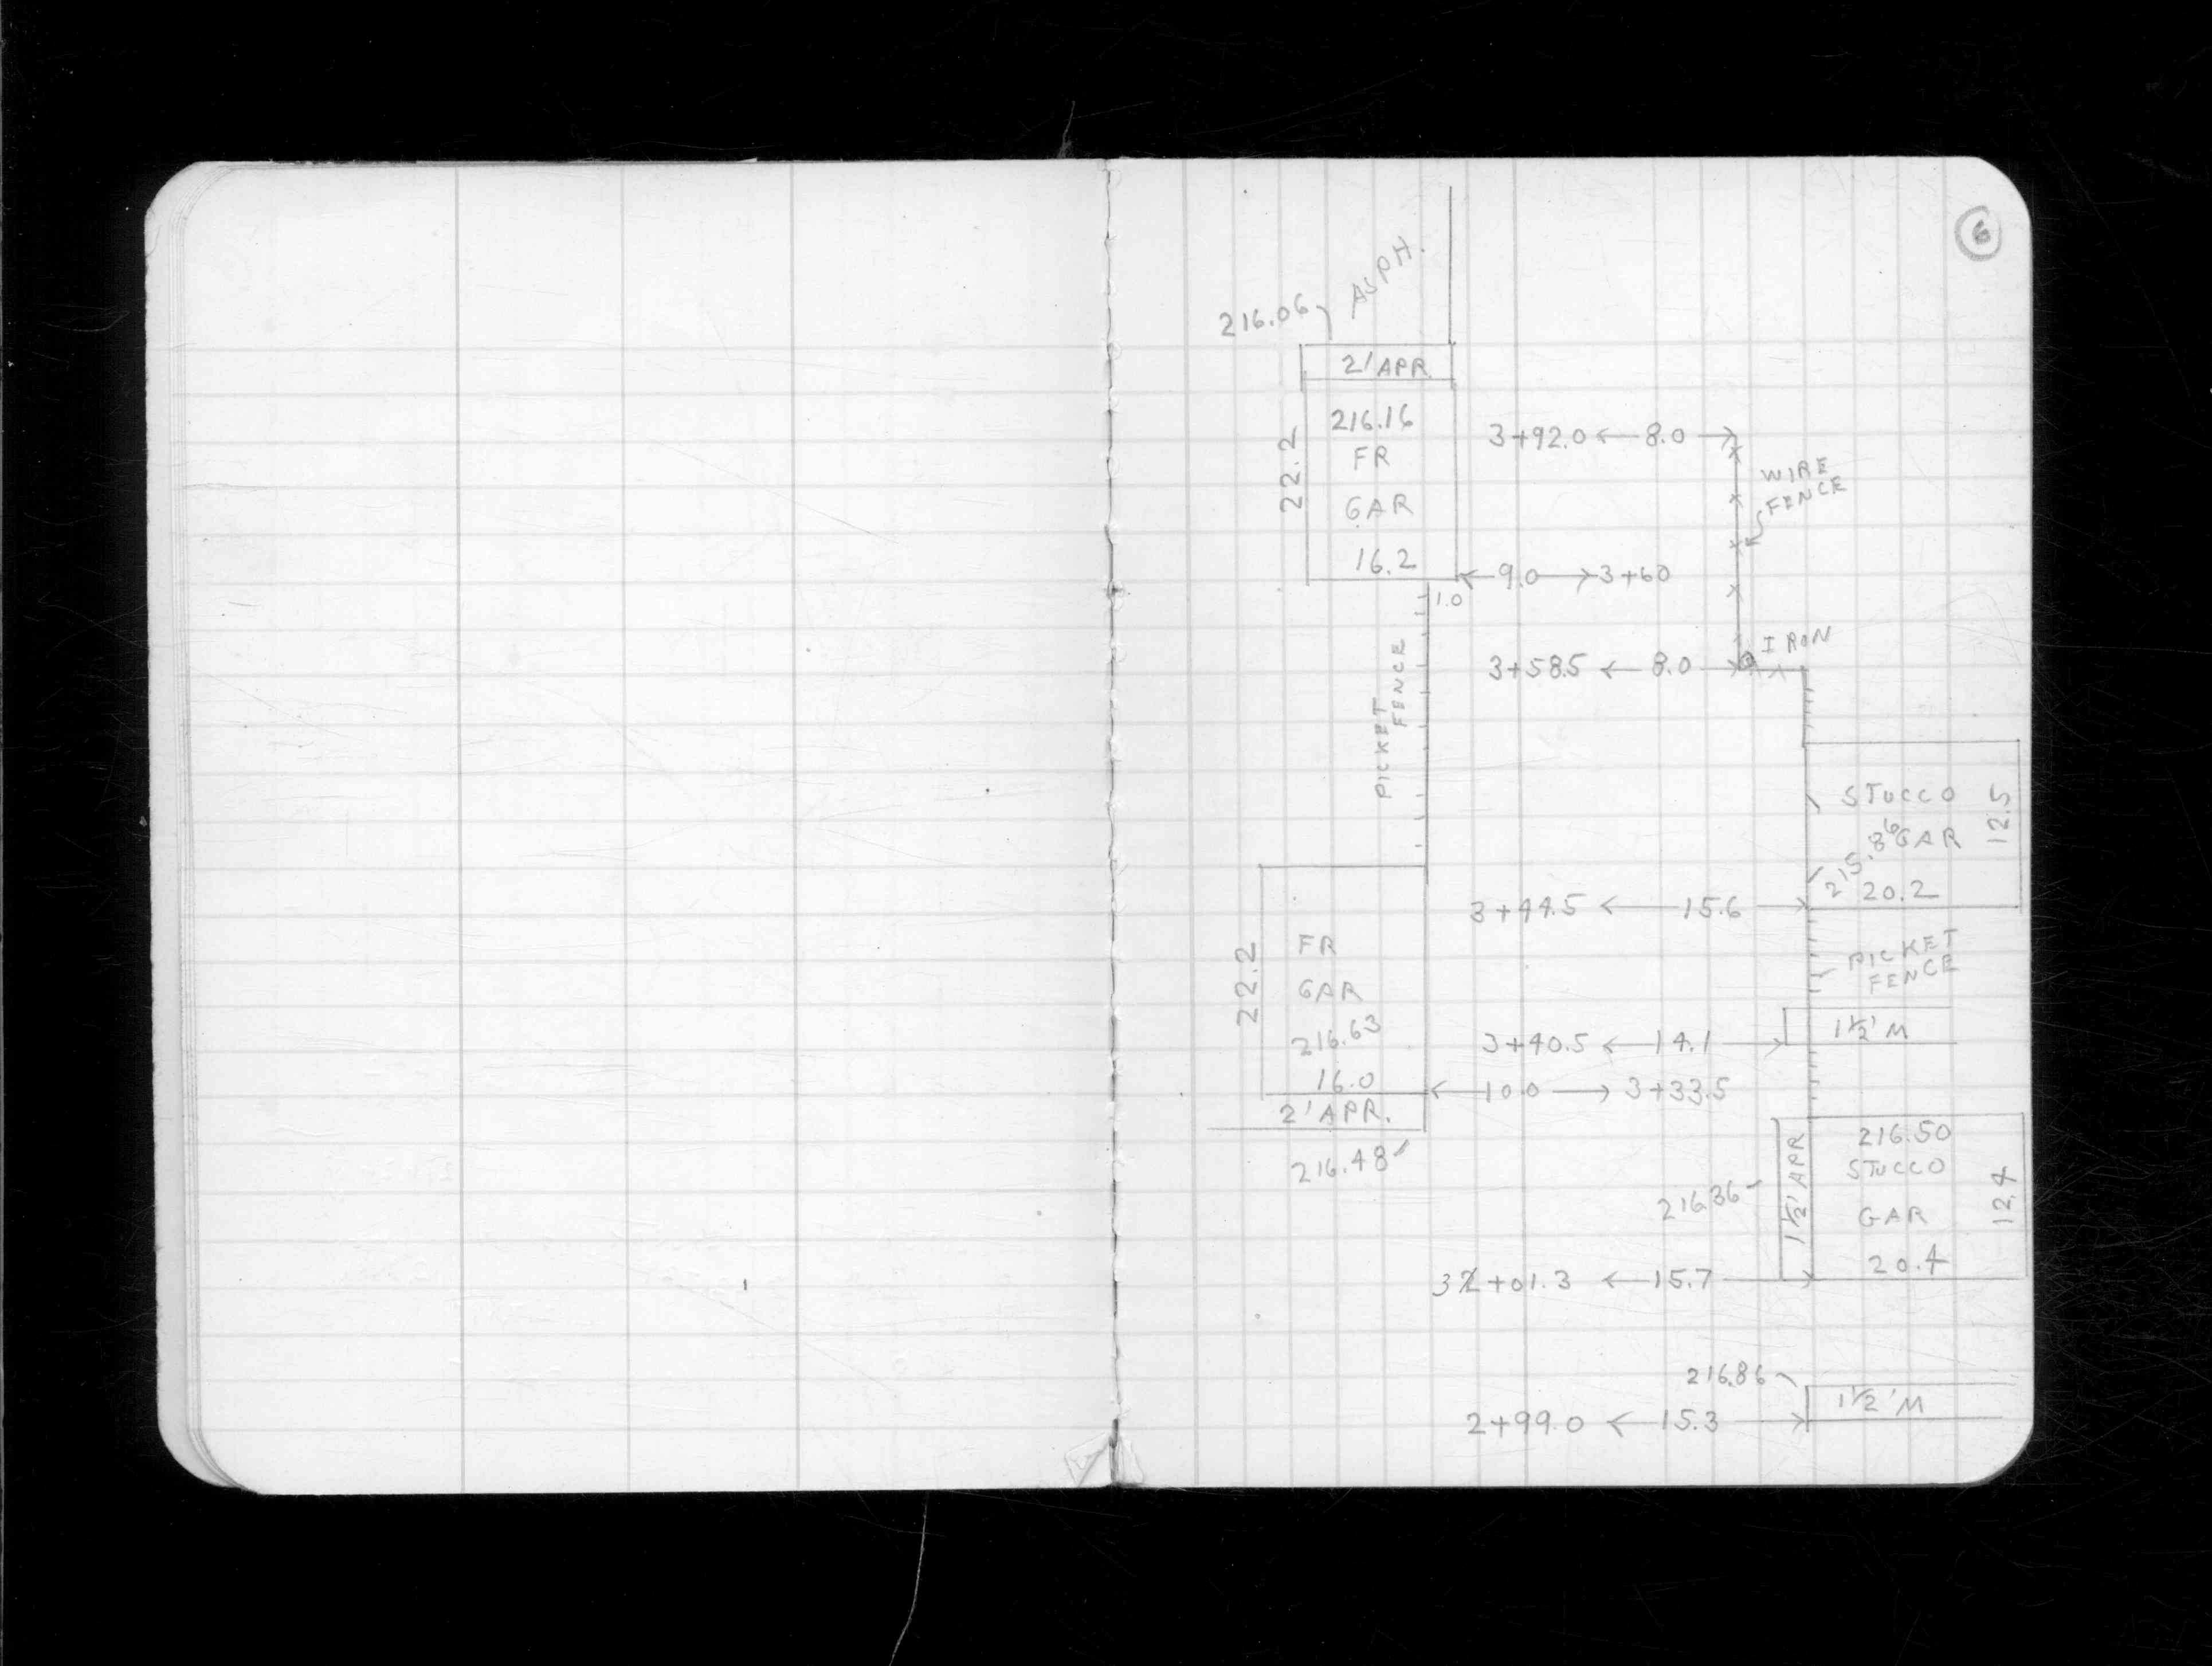 6
ASPH.
216.06
2' APR.
216.16
FR
GAR
16.2
22.2
3+92.0 ← 8.0 →
WIRE
FENCE
← 9.0 → 3+60
1.0
IRON
3+58.5 ← 8.0 →
PICKET
FENCE
STUCCO
GAR
215.86
20.2
12.5
3+44.5 ← 15.6 →
PICKET
FENCE
22.2
FR
GAR
216.63
16.0
1½' M
3+40.5 ← 14.1 →
← 10.0 → 3+33.5
2' APR.
216.48
216.50
STUCCO
GAR
20.4
12.4
1½' APR
216.36
3+01.3 ← 15.7 →
216.86
1½' M
2+99.0 ← 15.3 →